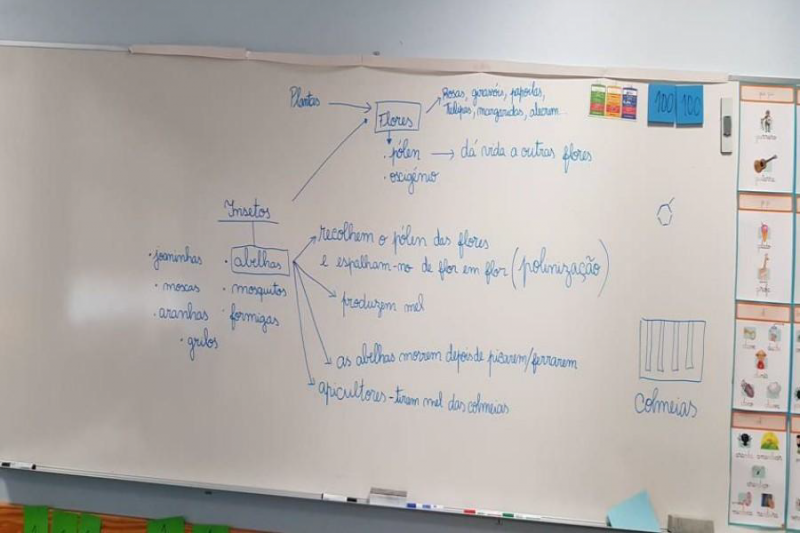 Plantas
Flores
Rosas, girassóis, papoilas,
Tulipas, margaridas, alecrim...
100 100
. pólen → dá vida a outras flores
. oxigénio
Insetos
. joaninhas
. abelhas
. moscas
. mosquitos
. aranhas
. formigas
. grilos
recolhem o pólen das flores
e espalham-no de flor em flor (polinização)
produzem mel
as abelhas morrem depois de picarem/ferrarem
apicultores - tiram mel das colmeias
Colmeias